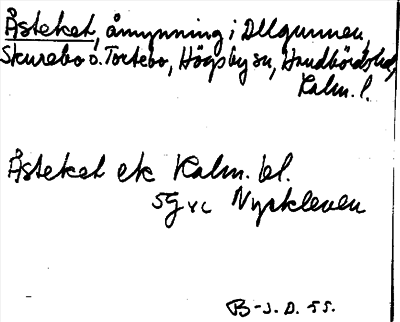 Åsteket, åmynning i Allgunnen,
Skurebo o. Tortebo, Högsby sn, Handbörds hd,
Kalm. l.
Åsteket ek Kalm. bl.
5G vc Nyskleven
B-J. D. 55.